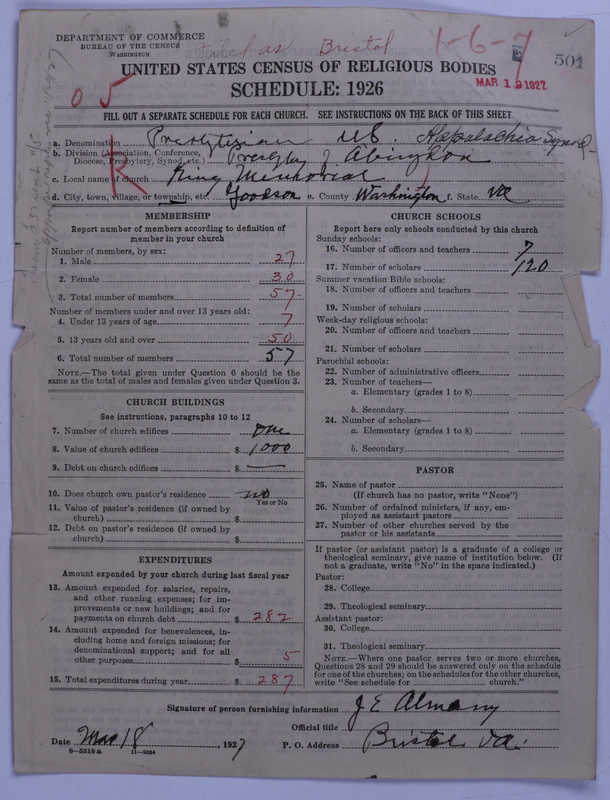 DEPARTMENT OF COMMERCE
BUREAU OF THE CENSUS
WASHINGTON
Filed as Bristol
1-6-7
501
UNITED STATES CENSUS OF RELIGIOUS BODIES
MAR 19 1927
SCHEDULE: 1926
0 5
FILL OUT A SEPARATE SCHEDULE FOR EACH CHURCH. SEE INSTRUCTIONS ON THE BACK OF THIS SHEET
a. Denomination Presbyterian U.S. Appalachia Synod
b. Division (Association, Conference, Diocese, Presbytery, Synod, etc.) Presbytery of Abingdon
R
c. Local name of church King Memorial
d. City, town, village, or township, etc. Goodson e. County Washington f. State Va
MEMBERSHIP
Report number of members according to definition of member in your church
Number of members, by sex:
1. Male 27
2. Female 30
3. Total number of members 57
Number of members under and over 13 years old:
4. Under 13 years of age 7
5. 13 years old and over 50
6. Total number of members 57
NOTE.—The total given under Question 6 should be the same as the total of males and females given under Question 3.
CHURCH BUILDINGS
See instructions, paragraphs 10 to 12
7. Number of church edifices one
8. Value of church edifices $ 1000
9. Debt on church edifices $ —
10. Does church own pastor's residence no
Yes or No
11. Value of pastor's residence (if owned by church) $
12. Debt on pastor's residence (if owned by church) $
EXPENDITURES
Amount expended by your church during last fiscal year
13. Amount expended for salaries, repairs, and other running expenses; for improvements or new buildings; and for payments on church debt $ 282
14. Amount expended for benevolences, including home and foreign missions; for denominational support; and for all other purposes $ 5
15. Total expenditures during year $ 287
CHURCH SCHOOLS
Report here only schools conducted by this church
Sunday schools:
16. Number of officers and teachers 7
17. Number of scholars 120
Summer vacation Bible schools:
18. Number of officers and teachers
19. Number of scholars
Week-day religious schools:
20. Number of officers and teachers
21. Number of scholars
Parochial schools:
22. Number of administrative officers
23. Number of teachers—
a. Elementary (grades 1 to 8)
b. Secondary
24. Number of scholars—
a. Elementary (grades 1 to 8)
b. Secondary
PASTOR
25. Name of pastor
(If church has no pastor, write "None")
26. Number of ordained ministers, if any, employed as assistant pastors
27. Number of other churches served by the pastor or his assistants
If pastor (or assistant pastor) is a graduate of a college or theological seminary, give name of institution below. (If not a graduate, write "No" in the space indicated.)
Pastor:
28. College
29. Theological seminary
Assistant pastor:
30. College
31. Theological seminary
NOTE.—Where one pastor serves two or more churches, Questions 28 and 29 should be answered only on the schedule for one of the churches; on the schedules for the other churches, write "See schedule for church."
Signature of person furnishing information J E Almany
Official title
Date Mar 18, 1927
P. O. Address Bristol Va.
8-5519 a 11-9064